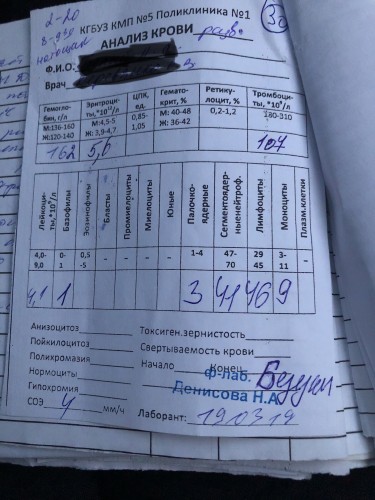 2-20
8-930
натощак
КГБУЗ КМП №5 Поликлиника №1
АНАЛИЗ КРОВИ
Ф.И.О.
Врач
Гемоглобин, г/л Эритроциты,*10¹²/л ЦПК, ед. Гематокрит, % Ретикулоцит, % Тромбоциты,*10⁹/л
М:136-160 Ж:120-140 М:4,5-5 Ж: 3,9-4,7 0,85-1,05 М: 40-48 Ж: 36-42 0,2-1,2 180-310
162 5,6 107
Лейкоциты,*10⁹/л Базофилы Эозинофилы Бласты Промиелоциты Миелоциты Юные Палочкоядерные Сегментоядерныенейтроф. Лимфоциты Моноциты Плазм.клетки
4,0-9,0 0-1 0,5-5 - - - - 1-4 47-70 29 45 3-11 -
4,1 1 3 41 46 9
Анизоцитоз Токсиген.зернистость
Пойкилоцитоз Свертываемость крови
Полихромазия Начало Конец
Нормоциты ф-лаб.
Гипохромия Денисова Н.А.
СОЭ 4 мм/ч Лаборант: 19.03.19